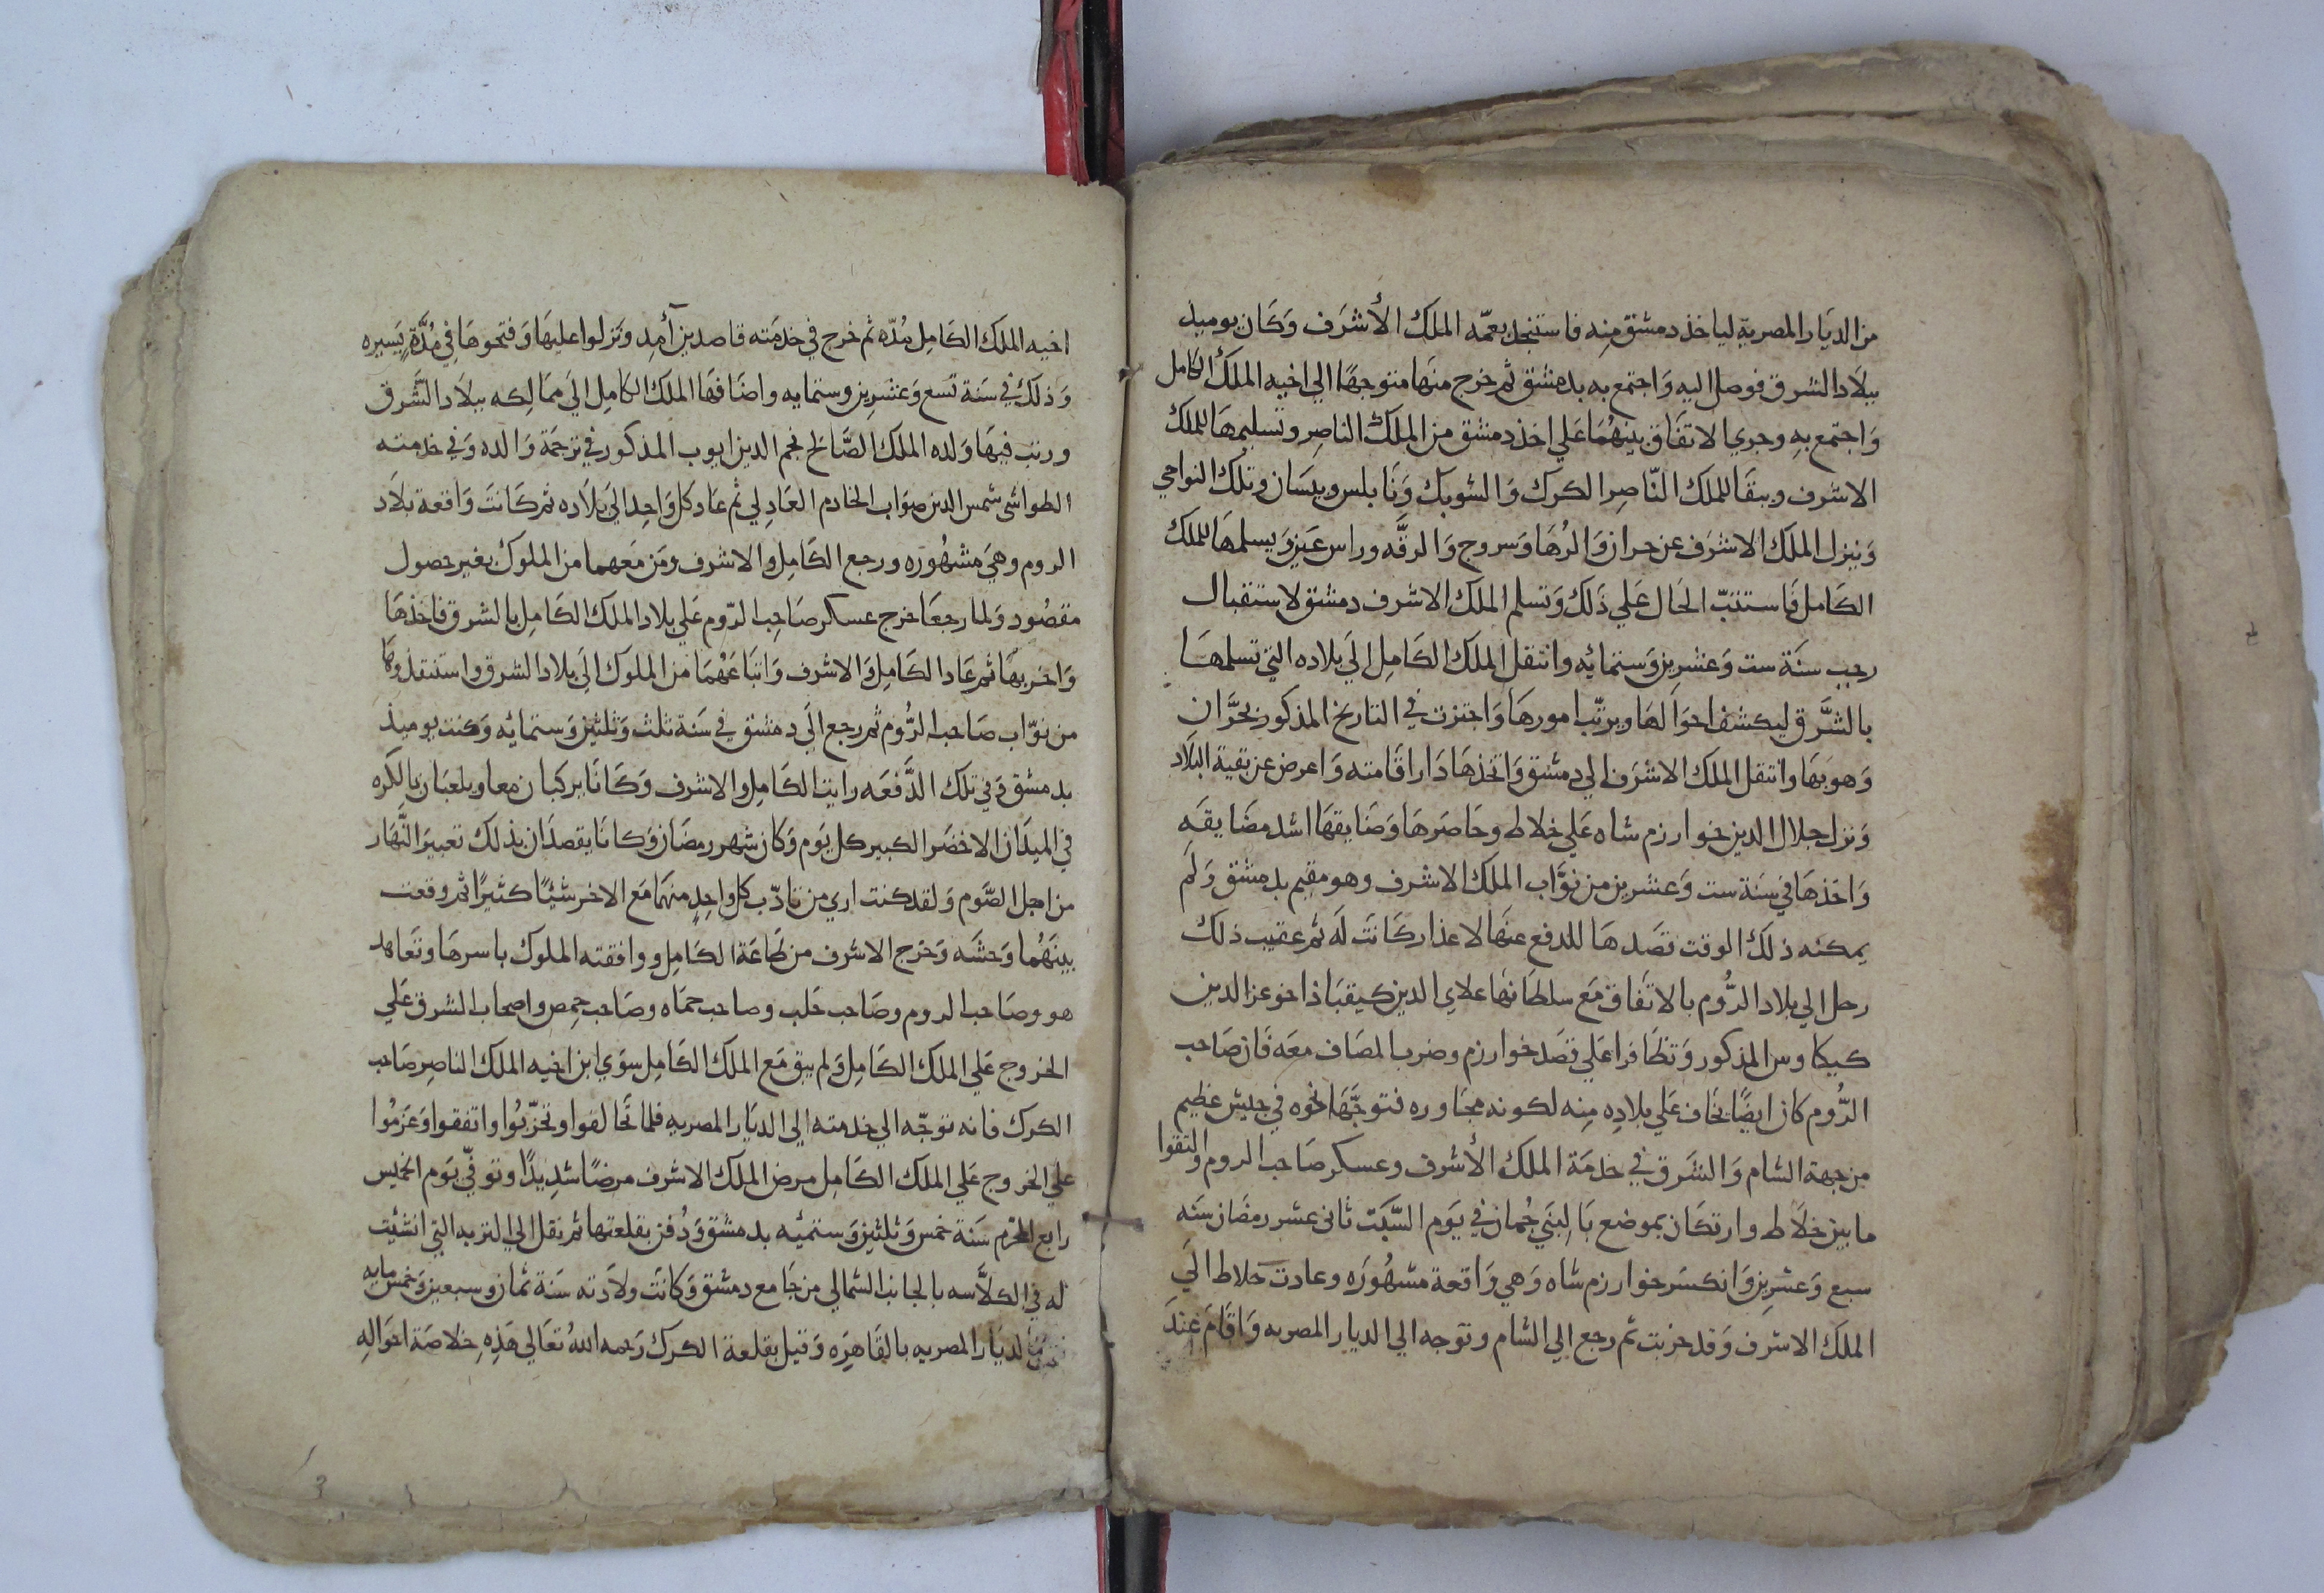 من الديَار المصرية لياخذ دمشق مِنه فاستنجد بعمّه الملك الأشرَف وَكَان يوميذ
ببلَاد الشرق فوصل اليه وَاجتمع به بدمشق ثم خرج منهَا متوجهًا الي اخيه الملك الكامل
وَاجتمع بهِ وجري الاتفَاق بينهُمَا عَلي اخذ دمشق من الملك الناصِر وتسليمهَا للملك
الاشرف ويبقَا للملك النّاصِر الكرك وَالشوبك وَنَابلس وبيسَان وتلك النواحي
وَينزل الملَك الاشرَف عن حران وَالرُهَا وَسروج وَالرقَّه وراس عَين وَيسلمهَا للملك
الكَامل فَاستتبّ الحَال عَلي ذَلك وَتسلم الملَك الاشرف دمشق لاستقبال
رجب سنَة ست وَعشرين وَستمائه وانتقل الملك الكَامِل الَي بلاده التي تسلمهَا
بالشَّرق ليكشف احوَالهَا ويرتّب امورهَا وَاجتزت في التاريخ المذكور بحَرَّان
وَهوَ بهَا وانتقل الملك الاشرَف الي دمشق وَاتخذهَا دَار اقَامته وَاعرض عن بقية البلَاد
وَنزل جلال الدين خوارزم شاه عَلي خلاط وحَاصَرهَا وَضَايقهَا اشد مضَايقَهِ
وَاخذهَا في سنَة ست وَعشرين من نوَّاب الملَك الاشرف وهو مقيم بدمشق وَلَم
يمكنه ذلك الوقت قصَدهَا للدفع عنهَا لاعذار كَانت لَه ثم عقيب ذلك
رحل الي بلاد الرُّوم بالاتفَاق مَع سلطَانهَا علاي الدين كيقبَاذ اخو عز الدين
كيكاوس المذكور وَتظَافرا عَلي قصَد خوارزم وضرب المصَاف معَه فَان صَاحب
الرُّوم كان ايضًا يخَاف عَلي بلادِه مِنه لكونه مجَاوره فتوجّهَا نحوه في جيش عظيم
من جهة الشام وَالشَرق في خدمَة الملك الأشرف وعسكر صَاحب الروم والتقوا
ما بين خلَاط وارتكَان بموضع يَالبَني جُمان في يَوم السَّبَت ثانى عشر رمضَان سَنه
سبع وَعشرين وَانكسَر خوارزم شاه وَهي وَاقعة مشهُورَه وعادت خلاط الَي
الملَك الاشرف وَقد خربت ثم رجع الي الشام وتوجه الي الديار المصريه وَاقَام عِندَ
اخيه الملك الكَامِل مُدّه ثم خرج في خدمَته قاصدين آمِد ونَزلوا عليهَا وَفتحوهَا في مُدَّةٍ يَسيره
وَذلك في سَنة تسع وَعشرين وستمايه واضَافهَا الملك الكامِل الَي ممَالِكه ببلاد الشَّرق
ورتب فيهَا وَلده الملك الصَّالح نجم الدين ايوب المذكور في ترجمَة وَالده وَفي خدمته
الطواشى شمس الدين صوَاب الخادم العَادِلي ثم عَاد كل وَاحِد الَي بلَاده ثم كَانتَ وَاقعة بلَاد
الروم وهي مَشهُورَه ورجع الكَامِل والاشرف ومَن مَعهما من الملوك بغير حصول
مقصُود وَلما رجعَا خرج عسكر صَاحِب الرّوم عَلي بلاد الملك الكَامِل بالشرق فاخذهَا
وَاخربهَا ثم عَاد الكَامِل وَالاشرف وَاتبَاعهُمَا من الملوك الَي بلاد الشرق واستنقذوهَا
من نوّاب صَاحب الرُّوم ثم رجع الَي دمشق في سَنة ثلث وَثلثين وَستمائه وَكنت يوميذ
بدمشق وَفي تلك الدَّفعَه رايت الكَامِل والاشرف وَكَانَا يركبان معا ويلعبَان بالكره
في الميدَان الاخضَر الكبير كل يَوم وَكَان شهر رمضَان وَكانَا يقصدَان بذلك تعبير النَّهَار
من اجل الصَّوم وَلقد كنت اري من تَادّب كل واحدٍ منهمَا مَع الاخر شَيًّا كثيرًا ثم وقعت
بينَهُمَا وَحشَه وَخرج الاشرف من طَاعَة الكَامِل ووافقته الملوك باسرهَا وتعَاهد
هو وصَاحب الروم وصَاحب حَلب وصاحب حمَاه وصَاحب حِمص واصحاب الشرق عَلي
الخروج عَلي الملَك الكَامِل وَلم يبق مَع الملَك الكَامِل سوَي ابن اخيه الملك الناصِر صَاحب
الكرك فانه توَجّه الي خدمته الي الديَار المصريه فلما تَحَالفوا وتحزّبُوا واتفقوا وَعَزمُوا
علَي الخروج عَلي الملك الكَامِل مرض الملك الاشرف مرضًا شدِيدًا وتوفّي يَوم الخميس
رابع المحرّم سَنة خمس وَثلثين وَستميُه بدمشق وَدُفن بقلعتها ثم نقل الي التربه التي انشيت
له في الكلاَّسه بالجانب الشمالي من جَامع دمشق وَكانَت ولادَته سَنة ثمان وسبعين وَخمس مايه
الديَار المصريه بالقَاهِرَه وَقيل بقلعة الكرك رَحمه اللهُ تعَالي هَذِهِ خلاصَة احوَالِهِ